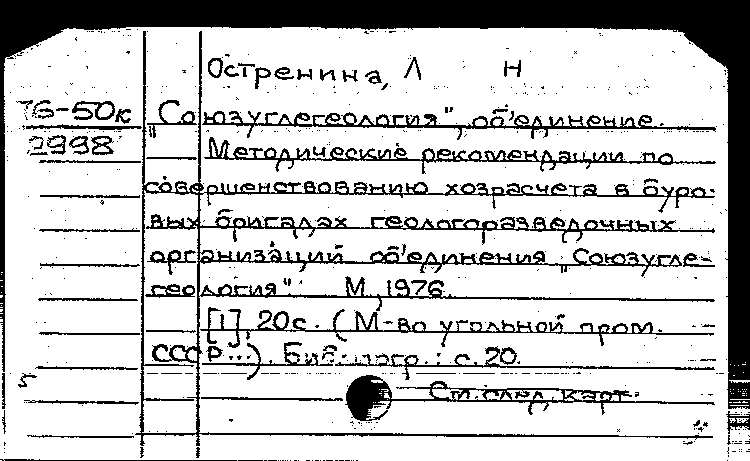 Остренина, Л Н
76-50к "Союзуглегеология", об'единение.
2998 Методические рекомендации по
совершенствованию хозрасчета в буро-
вых бригадах геологоразведочных
организаций об'единения "Союзугле-
геология". М, 1976.
[1], 20с. (М-во угольной пром.
СССР...). Библиогр.: с.20.
5
См. след, карт.